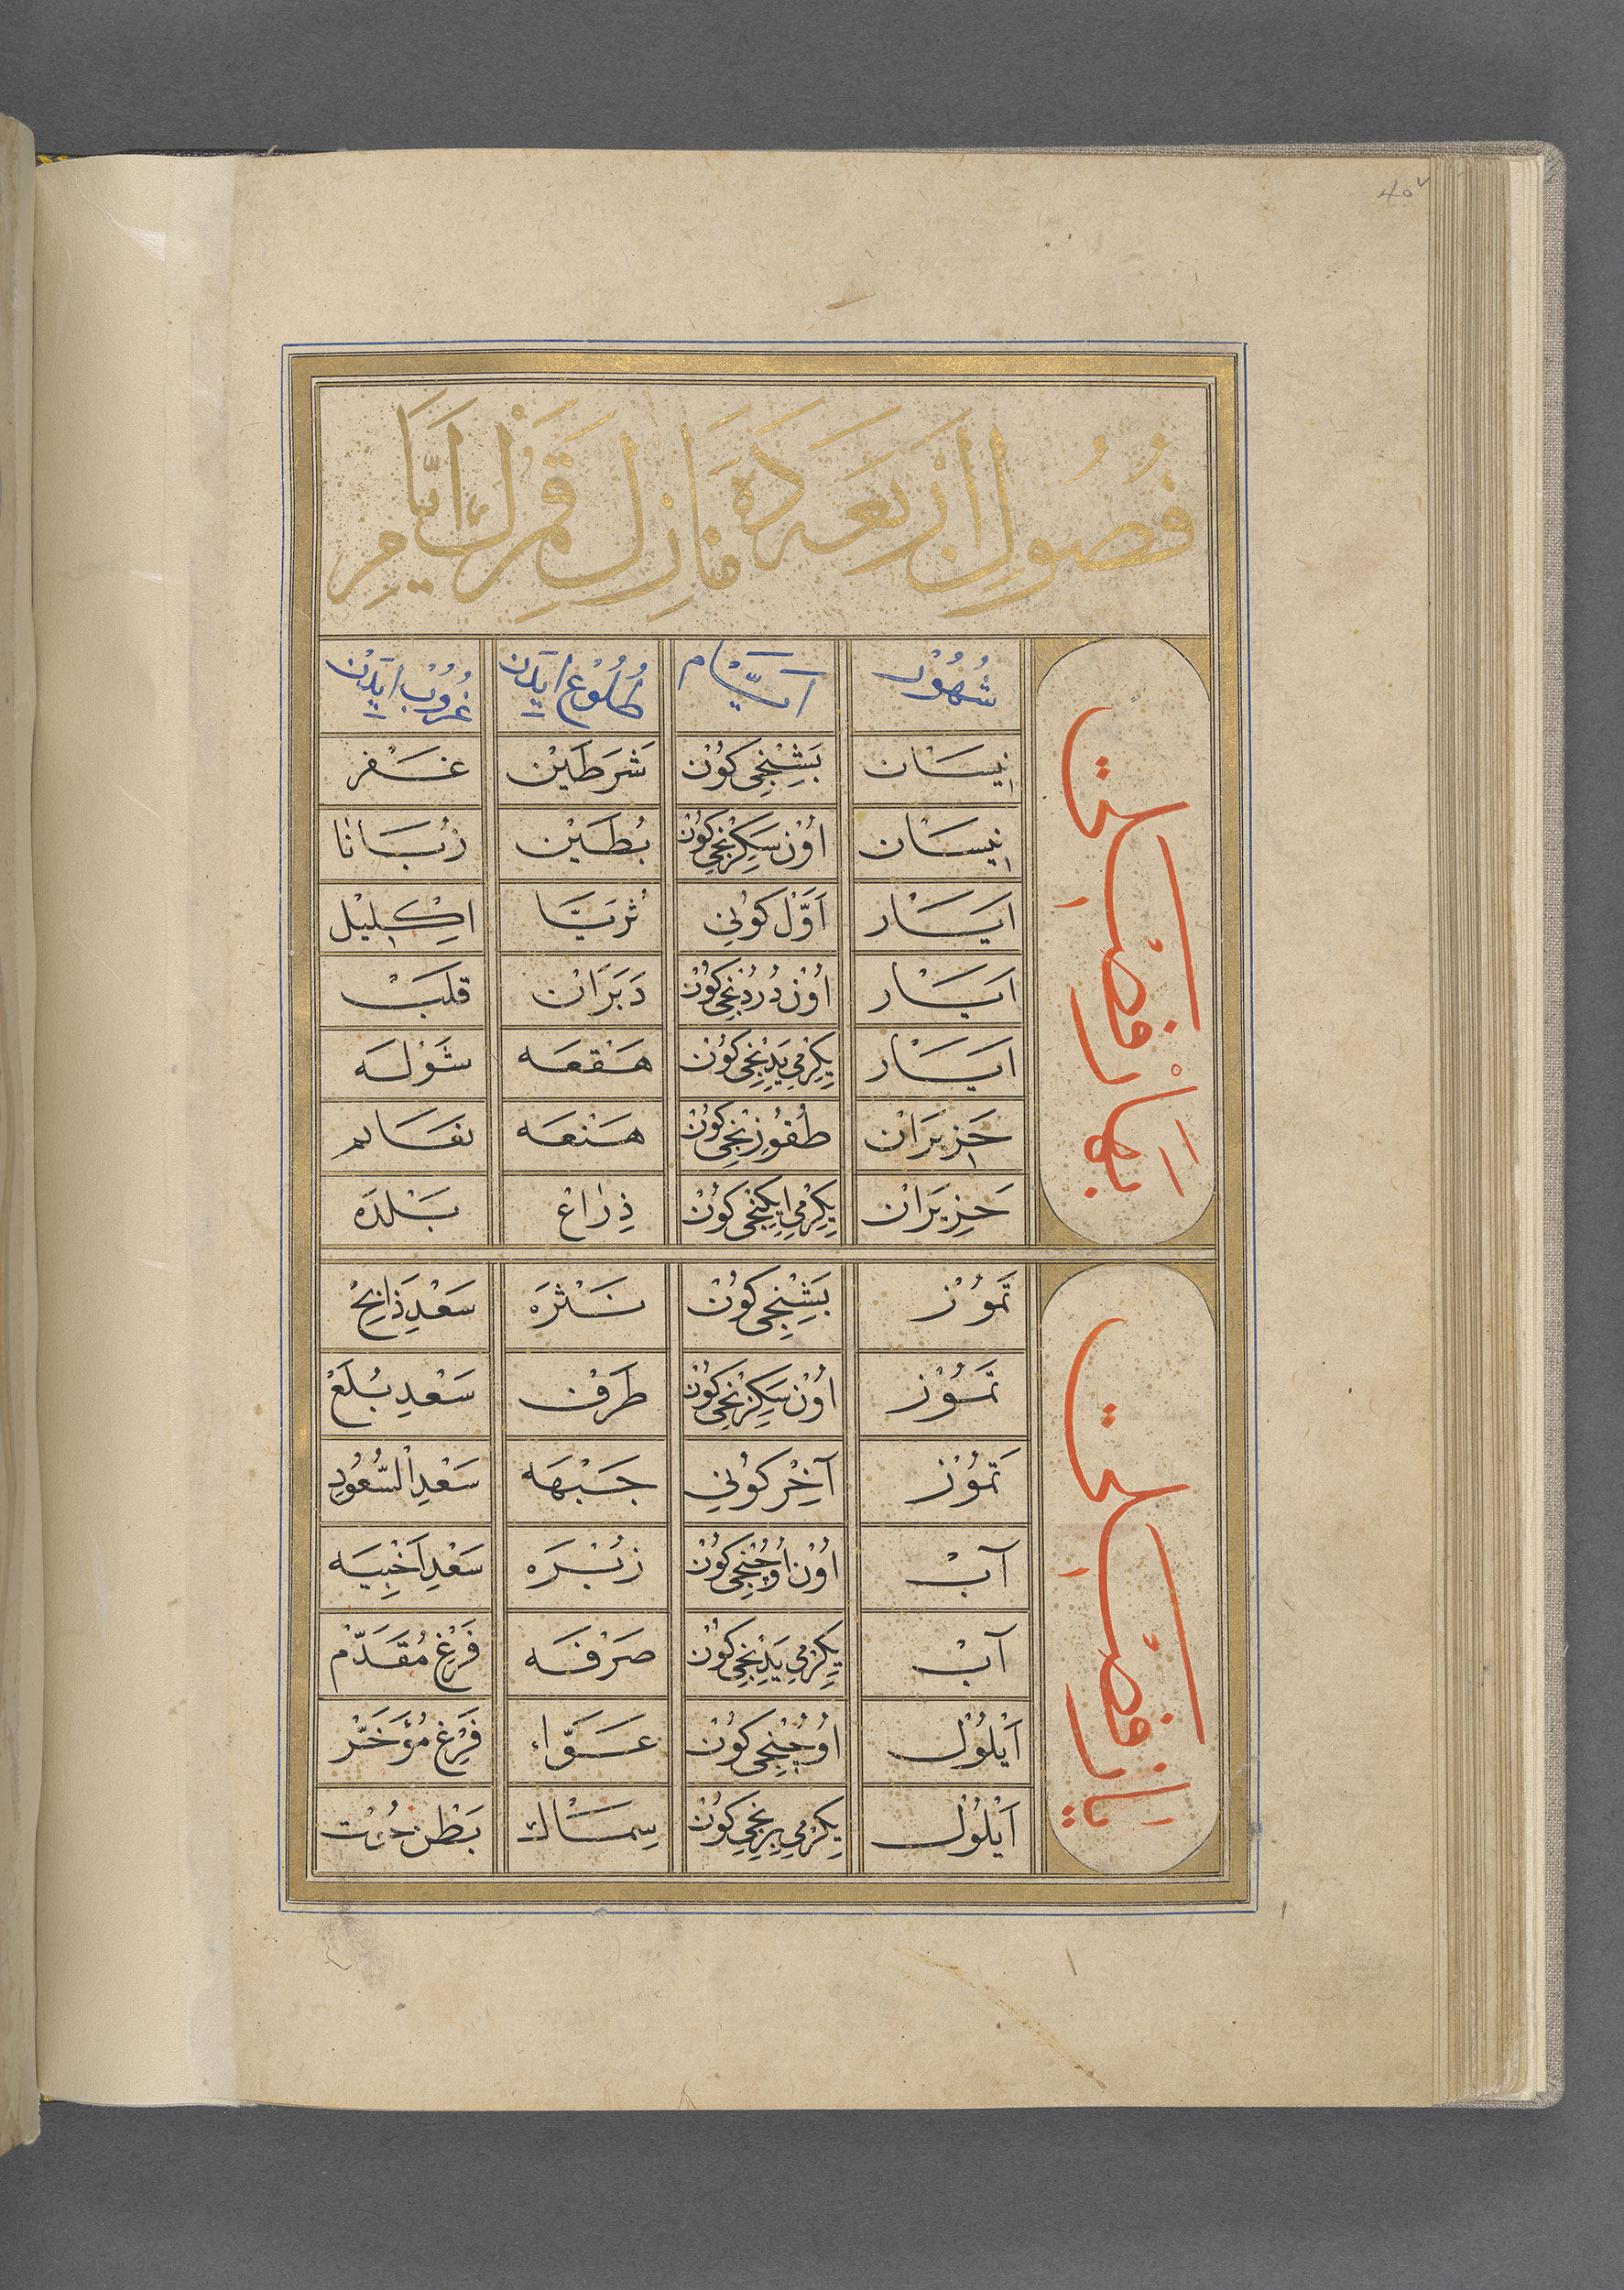 40v
فُصُولِ اَرْبَعَه‌دَه مَنَازِلِ قَمَرِڭ اَيَّامِ
بَهَارْ فَصْلِنِڭ
شُهُوْر اَيَّام طُلُوْع اِيدَن غُرُوْب اِيدَن
نِيسَان بَشِنْجِى كُوْن شَرَطَيْن غَفْر
نِيسَان اُوْن سَكِزِنْجِى كُوْن بُطَيْن زُبَانَا
اَيَار اَوَّل كُونِى ثُرَيَّا اِكْلِيْل
اَيَار اُوْن دُرْدُنْجِى كُوْن دَبَرَان قَلْب
اَيَار يِكِرْمِى يَدِنْجِى كُوْن هَقْعَه شَوْلَه
حَزِيرَانْ طُقُوزِنْجِى كُوْن هَنْعَه نَعَايم
حَزِيرَانْ يِكِرْمِى اِيكِنْجِى كُوْن ذِرَاعْ بَلْدَه
يَازْ فَصْلِنِڭ
تَمُوْز بَشِنْجِى كُوْن نَثْرَه سَعْدِ ذَابِحْ
تَمُوْز اُوْن سَكِزِنْجِى كُوْن طَرْف سَعْدِ بُلَعْ
تَمُوْز آخِرْ كُونِى جَبْهَه سَعْدِ اَلسُّعُود
آبْ اُوْن اُوْچُنْجِى كُوْن زُبْرَه سَعْدِ اَخْبِيَه
آبْ يِكِرْمِى يَدِنْجِى كُوْن صَرْفَه فَرْغِ مُقَدَّمْ
اَيْلُوْل اُوْچُنْجِى كُوْن عَوَّاء فَرْغِ مُؤَخَّرْ
اَيْلُوْل يِكِرْمِى بِرِنْجِى كُوْن سِمَاك بَطْنِ حُوْت